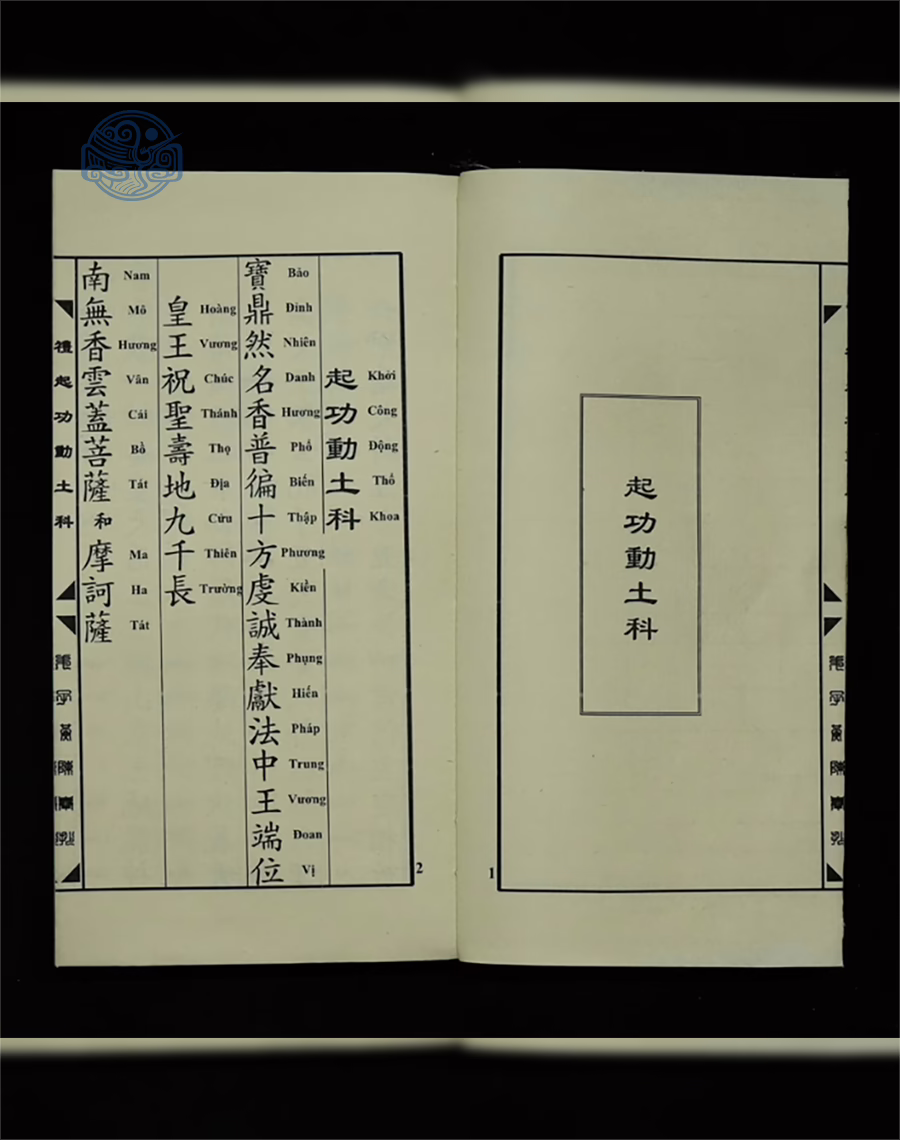 起功動土科
1
起功動土科
Khởi Công Động Thổ Khoa
寶鼎然名香普徧十方虔誠奉獻法中王端位
Bảo Đỉnh Nhiên Danh Hương Phổ Biến Thập Phương Kiền Thành Phụng Hiến Pháp Trung Vương Đoan Vị
皇王祝聖壽地九千長
Hoàng Vương Chúc Thánh Thọ Địa Cửu Thiên Trường
南無香雲蓋菩薩和摩訶薩
Nam Mô Hương Vân Cái Bồ Tát Ma Ha Tát
禮起功動土科
2